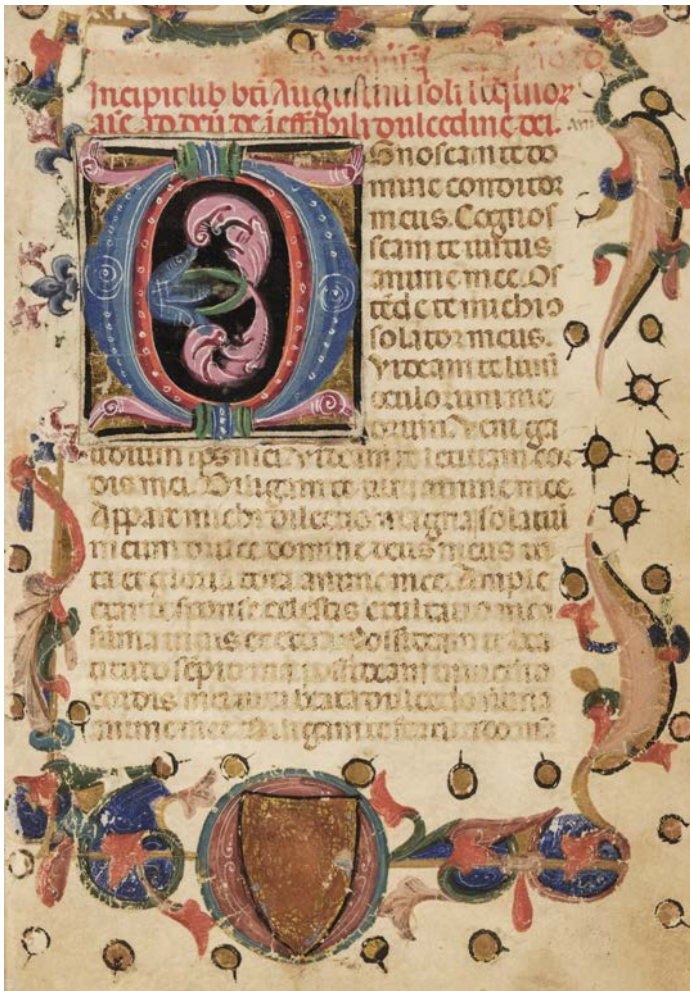 Incipit lib bti Augustini soliloquior
aīe ad deū de īeffabili dulcedine dei.
gnoscam te do
mine conditor
meus. Cognos
scam te virtus
anime mee. Os
tēde te michi
solator meus.
Videam te lumē
oculorum me
orum. Veni ga
udium sps mei. Videam te letitiam cor
dis mei. Diligam te vita anime mee.
Appare michi dilectio magna solatiū
meum dulce domine deus meus vi
ta et gloria tota anime mee. Ample
ctar te sponse celestis exultatio mea
suma intus et extra. Possideam te bea
titudo possideam
cordis mei vita beata dulcedo suma
anime mee. Diligam te